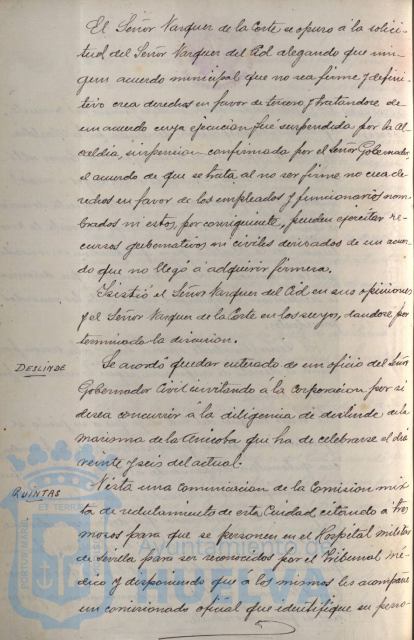 El Señor Vazquez de la Corte se opuso á la solici-
tud del Señor Vazquez del Cid alegando que nin-
gun acuerdo municipal que no sea firme y defini-
tivo crea derechos en favor de tercero y tratándose de
un acuerdo cuya ejecucion fué suspendida por la Al-
caldia, suspension confirmada por el Señor Gobernador
el acuerdo de que se trata al no ser firme no crea de-
rechos en favor de los empleados y funcionarios nom-
brados ni estos, por consiguiente, pueden ejercitar re-
cursos gubernativos ni civiles derivados de un acuer-
do que no llegó á adquirir firmeza.
Insistió el Señor Vazquez del Cid en sus opiniones
y el Señor Vazquez de la Corte en las suyas, dandose por
terminada la discusion.
DESLINDE
Se acordó quedar enterado de un oficio del Señor
Gobernador Civil invitando á la corporacion por si
desea concurrir á la diligencia de deslinde de la
marisma de la que ha de celebrarse el dia
veinte y seis del actual.
QUINTAS
Vista una comunicacion de la Comision mix-
ta de reclutamiento de esta Ciudad, citando á tres
mozos para que se personen en el Hospital militar
de Sevilla para ser reconocidos por el Tribunal mé-
dico y disponiendo que á los mismos les acompañe
un comisionado oficial que identifique su perso-
PORTUS MARIS ET TERRAE
Ayuntamiento de
HUELVA